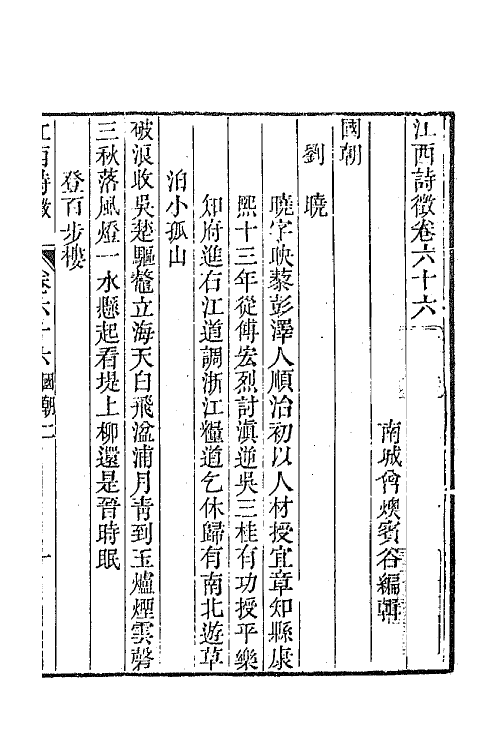 江西詩徵卷六十六
南城曾燠賓谷編輯
國朝
劉曉
曉字映藜彭澤人順治初以人材授宜章知縣康
熙十三年從傅宏烈討滇逆吳三桂有功授平樂
知府進右江道調浙江糧道乞休歸有南北遊草
泊小孤山
破浪收吳楚驅鼇立海天白飛湓浦月青到玉爐煙雲磬
三秋落風燈一水懸起看堤上柳還是晉時眠
登百步樓
江西詩徵 卷六十六 國朝二 一